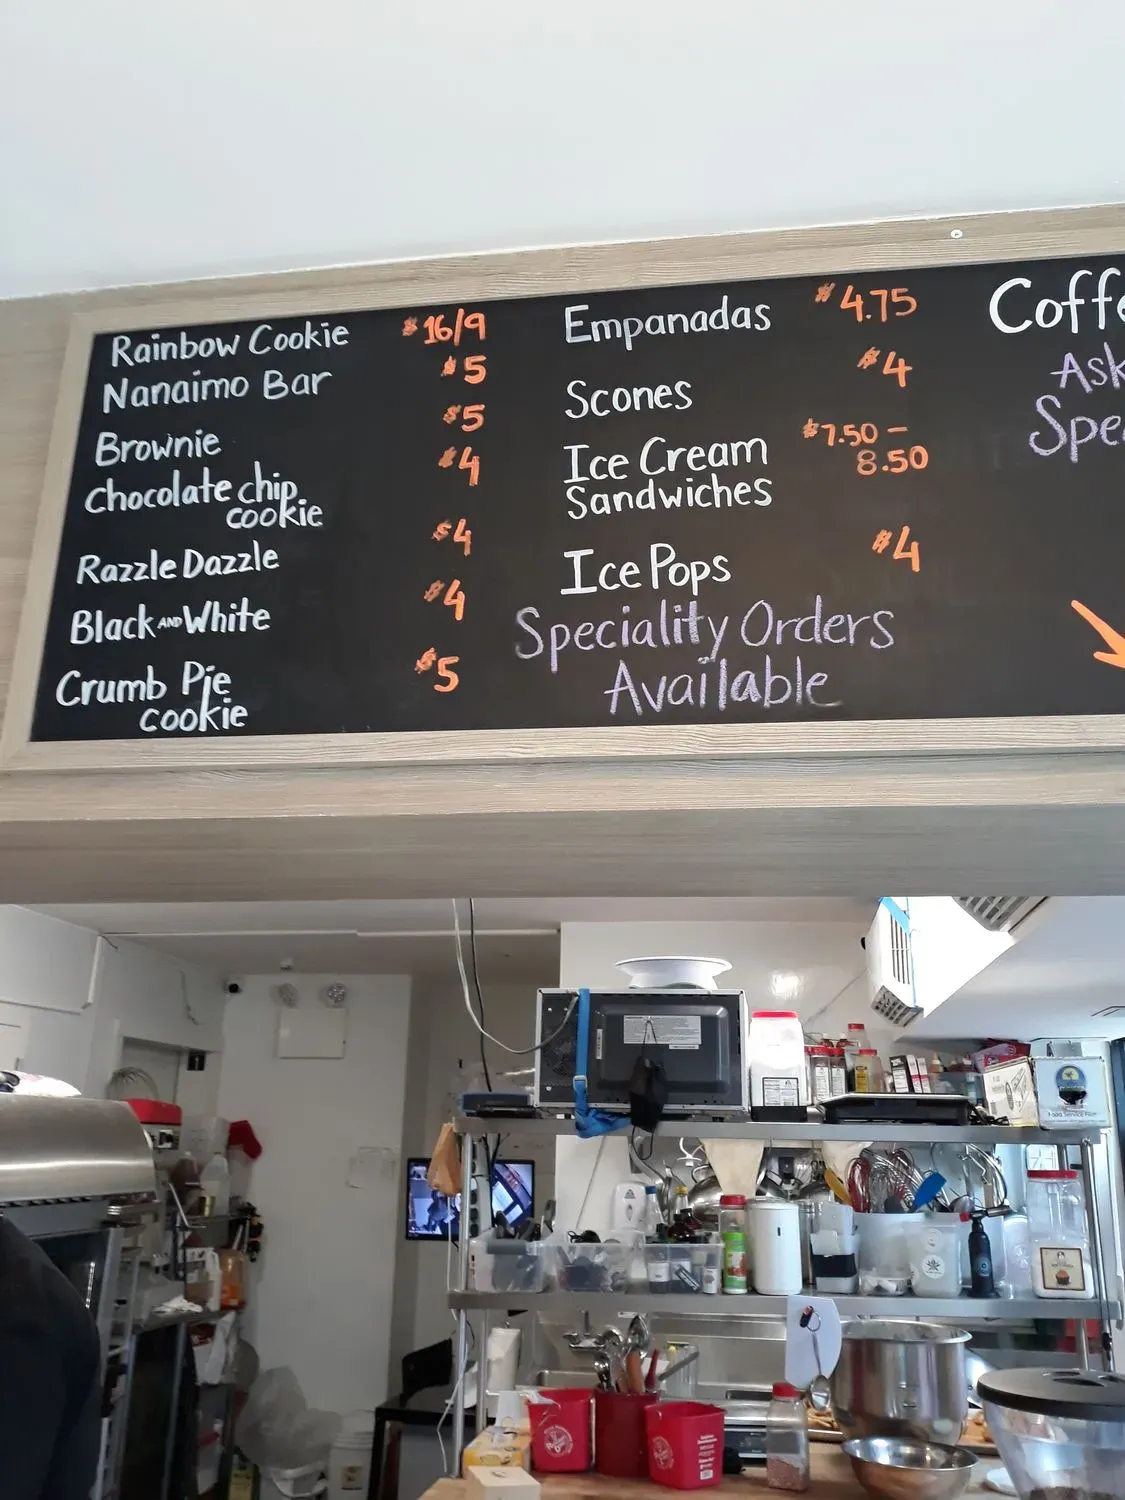 Rainbow Cookie $16/9
Nanaimo Bar $5
Brownie $5
Chocolate chip $4
cookie
Razzle Dazzle $4
Black AND White $4
Crumb Pie $5
cookie
Empanadas $4.75
Scones $4
Ice Cream $7.50 –
Sandwiches 8.50
Ice Pops $4
Speciality Orders
Available
Coffe
Ask
Spe